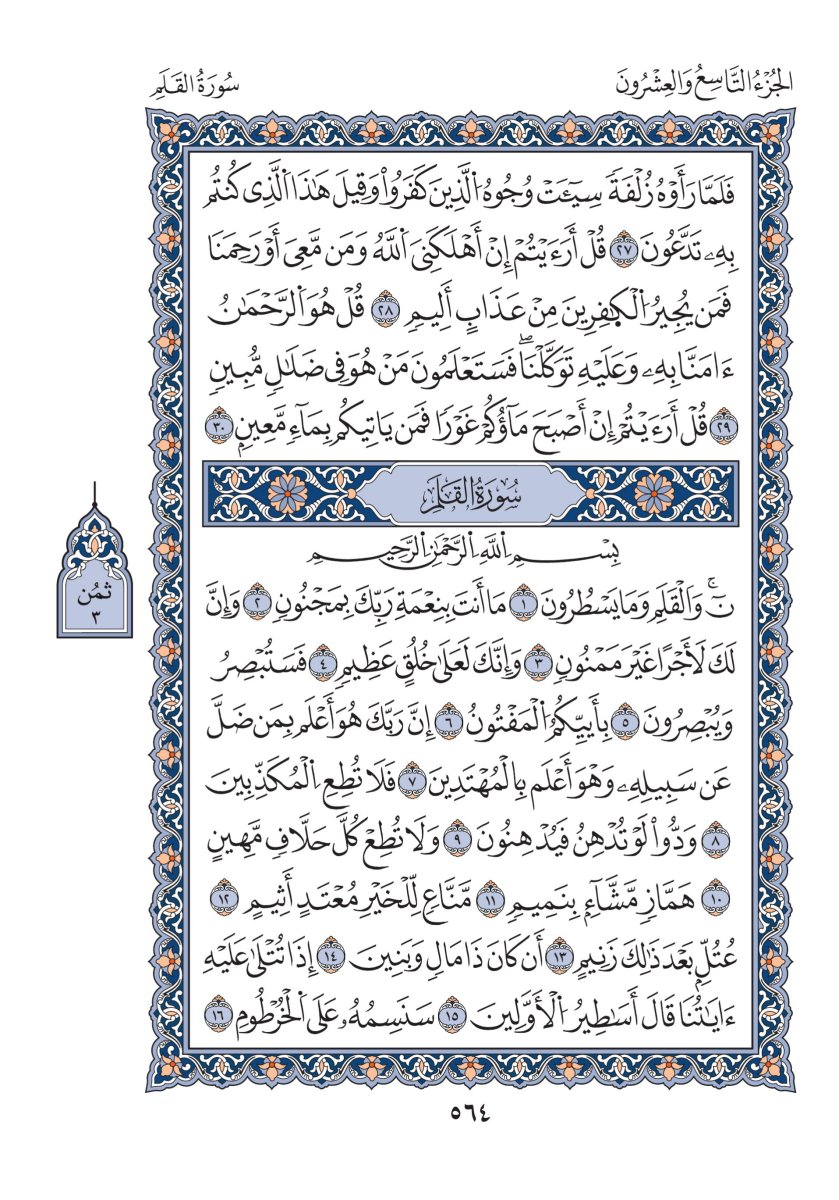 الجُزْءُ التَّاسِعُ وَالعِشْرُونَ
سُورَةُ القَلَمِ
فَلَمَّا رَأَوْهُ زُلْفَةٗ سِيٓـَٔتْ وُجُوهُ اُ۬لذِينَ كَفَرُواْ وَقِيلَ هَٰذَا اَ۬لذِي كُنتُم
بِهِۦ تَدَّعُونَ ٢٧ قُلْ أَرَءَيْتُمُۥٓ إِنْ أَهْلَكَنِيَ اَ۬للَّهُ وَمَن مَّعِيَ أَوْ رَحِمَنَا
فَمَن يُجِيرُ اُ۬لْكٰفِرِينَ مِنْ عَذَابٍ أَلِيمٖ ٢٨ قُلْ هُوَ اَ۬لرَّحْمَٰنُ
ءَامَنَّا بِهِۦ وَعَلَيْهِ تَوَكَّلْنَاۖ فَسَتَعْلَمُونَ مَنْ هُوَ فِي ضَلَٰلٖ مُّبِينٖ
٢٩ قُلْ أَرَءَيْتُمُۥٓ إِنْ أَصْبَحَ مَآؤُكُمْ غَوْراٗ فَمَن يَاتِيكُم بِمَآءٖ مَّعِينٖ ٣٠
سُورَةُ القَلَمِ
بِسْمِ اِ۬للَّهِ اِ۬لرَّحْمَٰنِ اِ۬لرَّحِيمِ
نٓۚ وَالْقَلَمِ وَمَا يَسْطُرُونَ ١ مَا أَنتَ بِنِعْمَةِ رَبِّكَ بِمَجْنُونٖ ٢ وَإِنَّ
لَكَ لَأَجْراً غَيْرَ مَمْنُونٖ ٣ وَإِنَّكَ لَعَلَىٰ خُلُقٍ عَظِيمٖ ٤ فَسَتُبْصِرُ
وَيُبْصِرُونَ ٥ بِأَييِّكُمُ اُ۬لْمَفْتُونُ ٦ إِنَّ رَبَّكَ هُوَ أَعْلَم بِمَن ضَلَّ
عَن سَبِيلِهِۦ وَهُوَ أَعْلَم بِالْمُهْتَدِينَ ٧ فَلَا تُطِعِ اِ۬لْمُكَذِّبِينَ
٨ وَدُّواْ لَوْ تُدْهِنُ فَيُدْهِنُونَ ٩ وَلَا تُطِعْ كُلَّ حَلَّافٖ مَّهِينٍ
١٠ هَمَّازٖ مَّشَّآءِۭ بِنَمِيمٖ ١١ مَّنَّاعٖ لِّلْخَيْرِ مُعْتَدٍ أَثِيمٍ ١٢
عُتُلِّۭ بَعْدَ ذَٰلِكَ زَنِيمٍ ١٣ أَن كَانَ ذَا مَالٖ وَبَنِينَ ١٤ إِذَا تُتْلَىٰ عَلَيْهِ
ءَايَٰتُنَا قَالَ أَسَٰطِيرُ اُ۬لْأَوَّلِينَ ١٥ سَنَسِمُهُۥ عَلَى اَ۬لْخُرْطُومِ ١٦
ثمُن
٣
٥٦٤